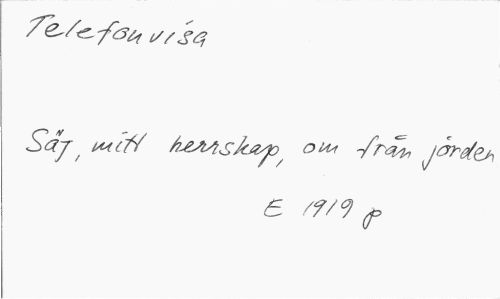 Telefonvisa
Säj, mitt herrskap, om från jorden
E 1919 p